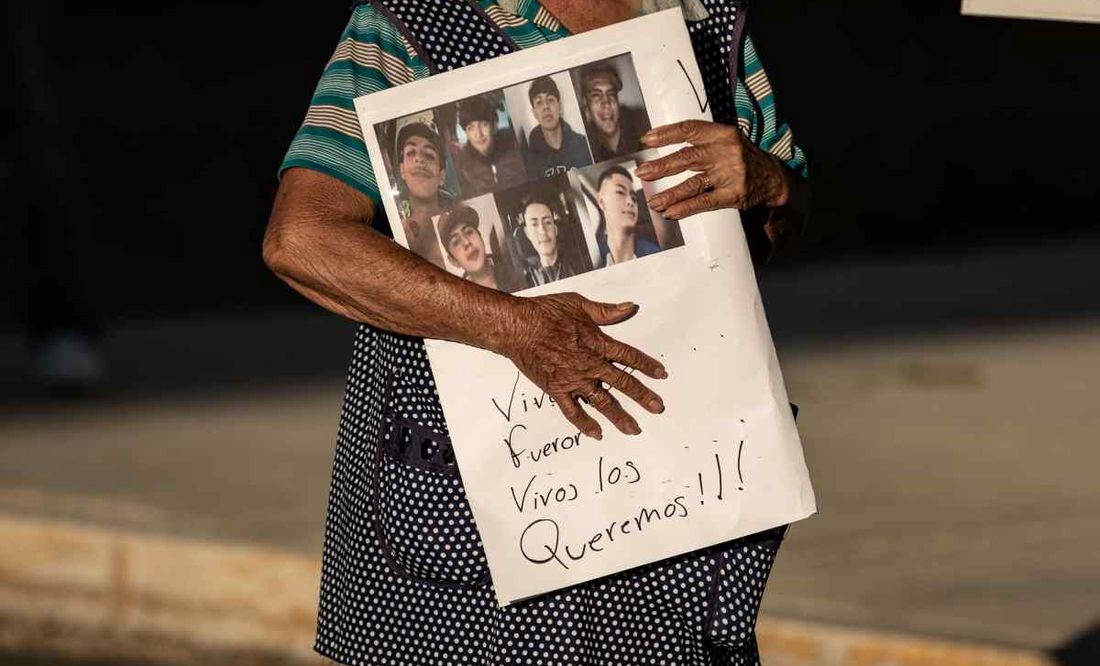 Fueron
Vivos los
Queremos!!!